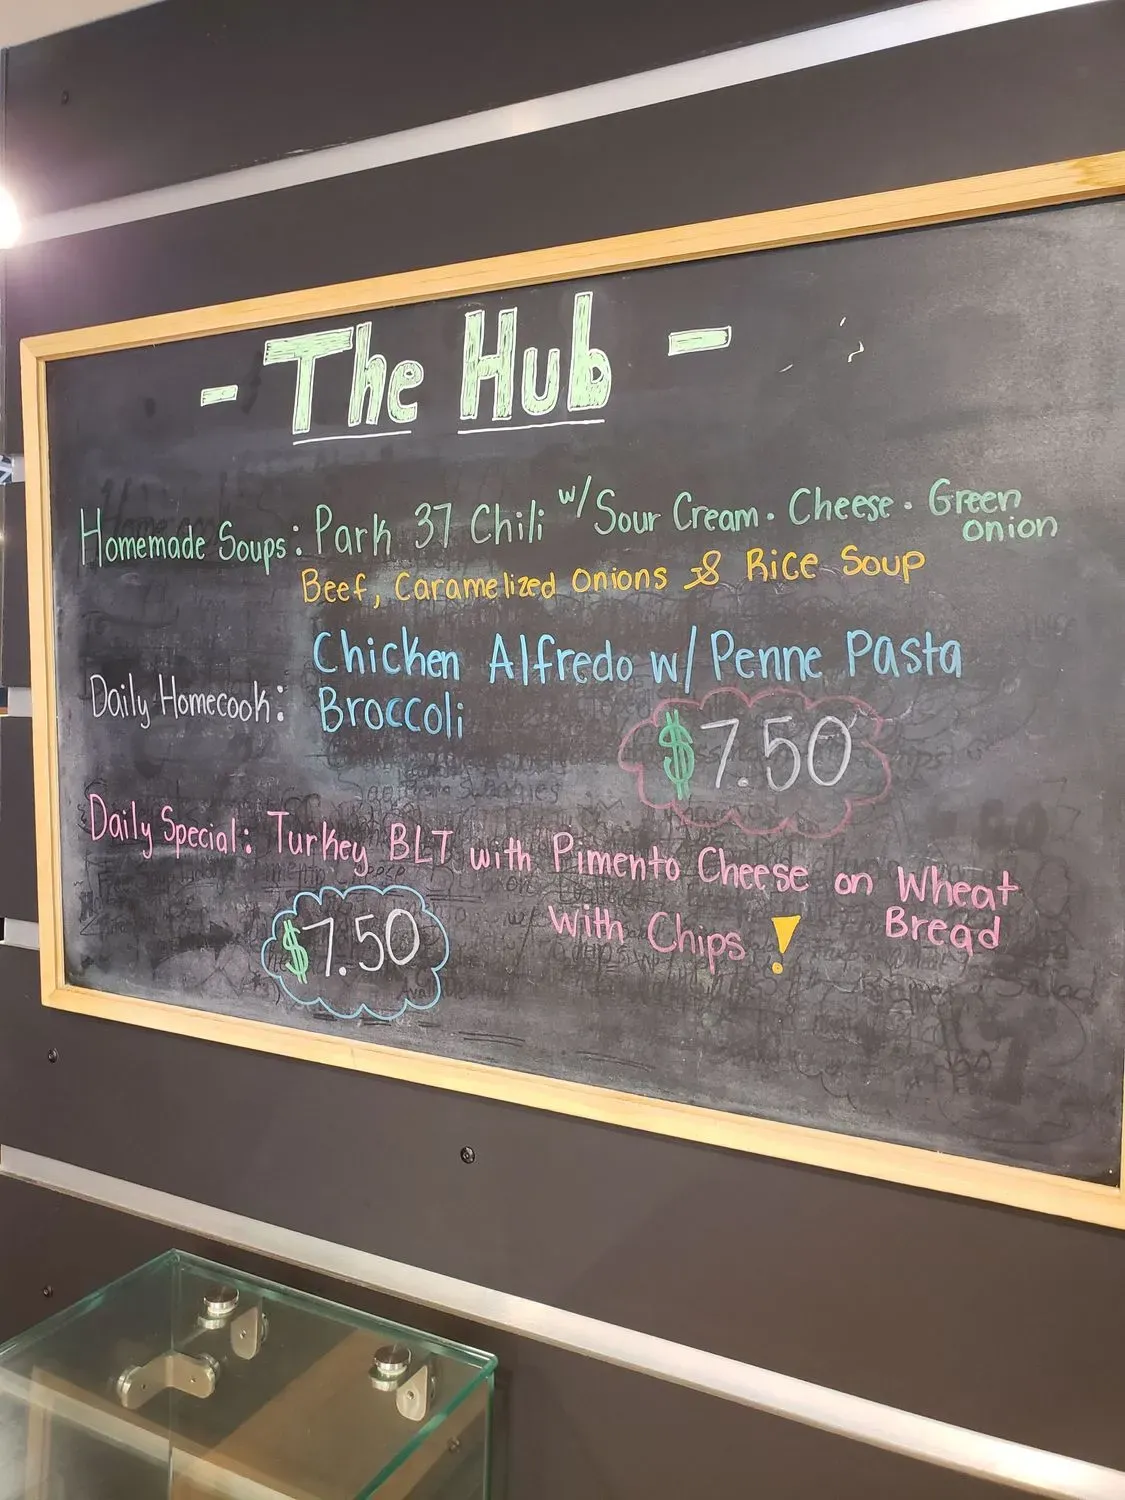 - The Hub -
Homemade Soups: Park 37 Chili w/ Sour Cream · Cheese · Green
onion
Beef, Caramelized onions & Rice Soup
Chicken Alfredo w/ Penne Pasta
Daily Homecook: Broccoli
$7.50
Daily Special: Turkey BLT with Pimento Cheese on Wheat
with Chips ! Bread
$7.50